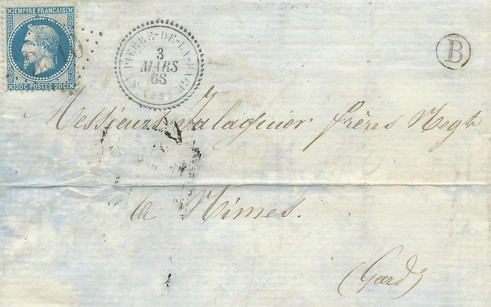 EMPIRE FRANÇAIS
20c POSTES 20c
ST-PIERRE-DE-LA-FAGE
3
MARS
68
B
Messieurs Valaguier frères Negts
a Nimes.
(Gard)